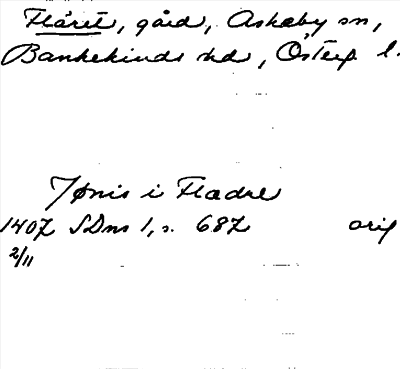 Flåret, gård, Askeby sn,
Bankekinds hd, Österg l.
Jønis i Fladre
1407 SDns 1, s. 687 orig
2/11